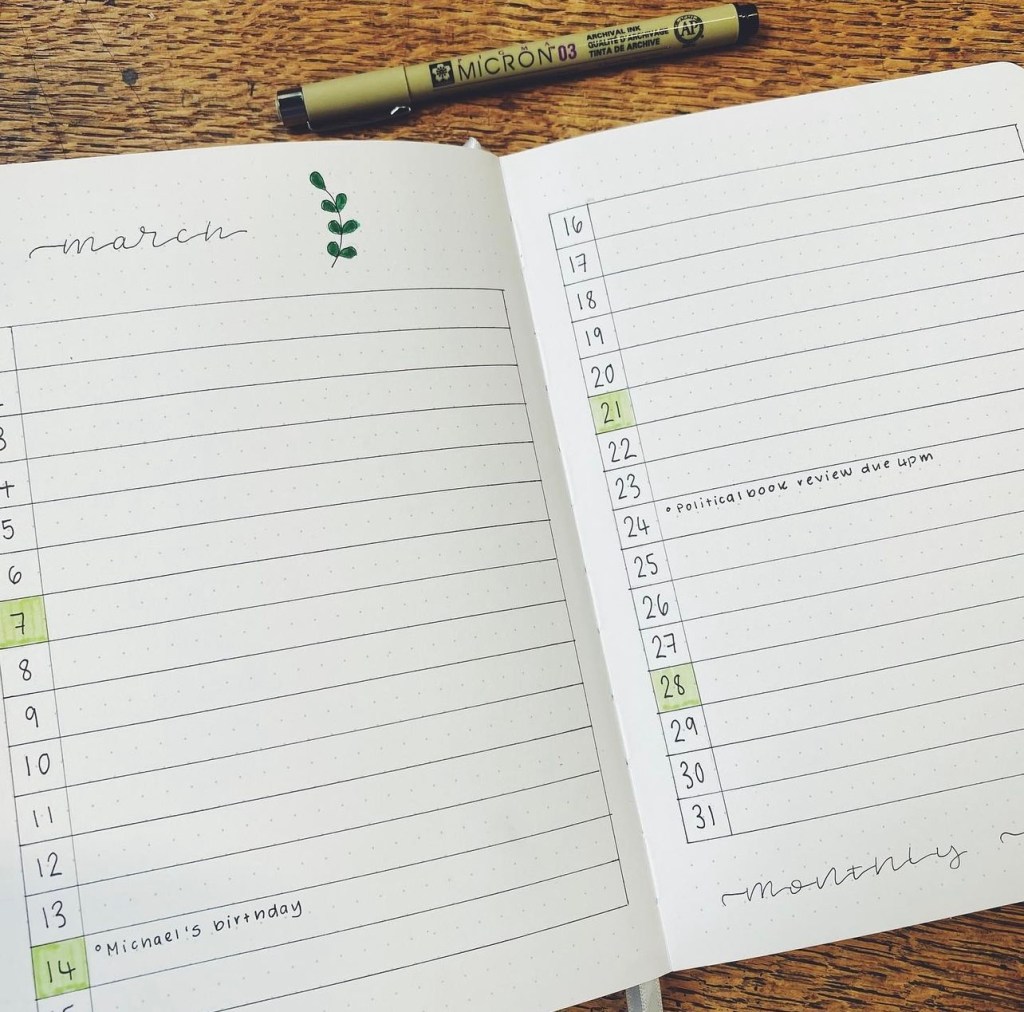 MICRON 03
ARCHIVAL INK
QUALITÉ D'ARCHIVAGE
TINTA DE ARCHIVE
AP
march
3
4
5
6
7
8
9
10
11
12
13
14 °Michael's birthday
16
17
18
19
20
21
22
23
24 °Political book review due 4pm
25
26
27
28
29
30
31
monthly